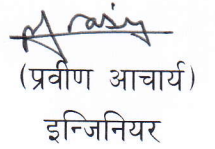 (प्रवीण आचार्य)
इन्जिनियर